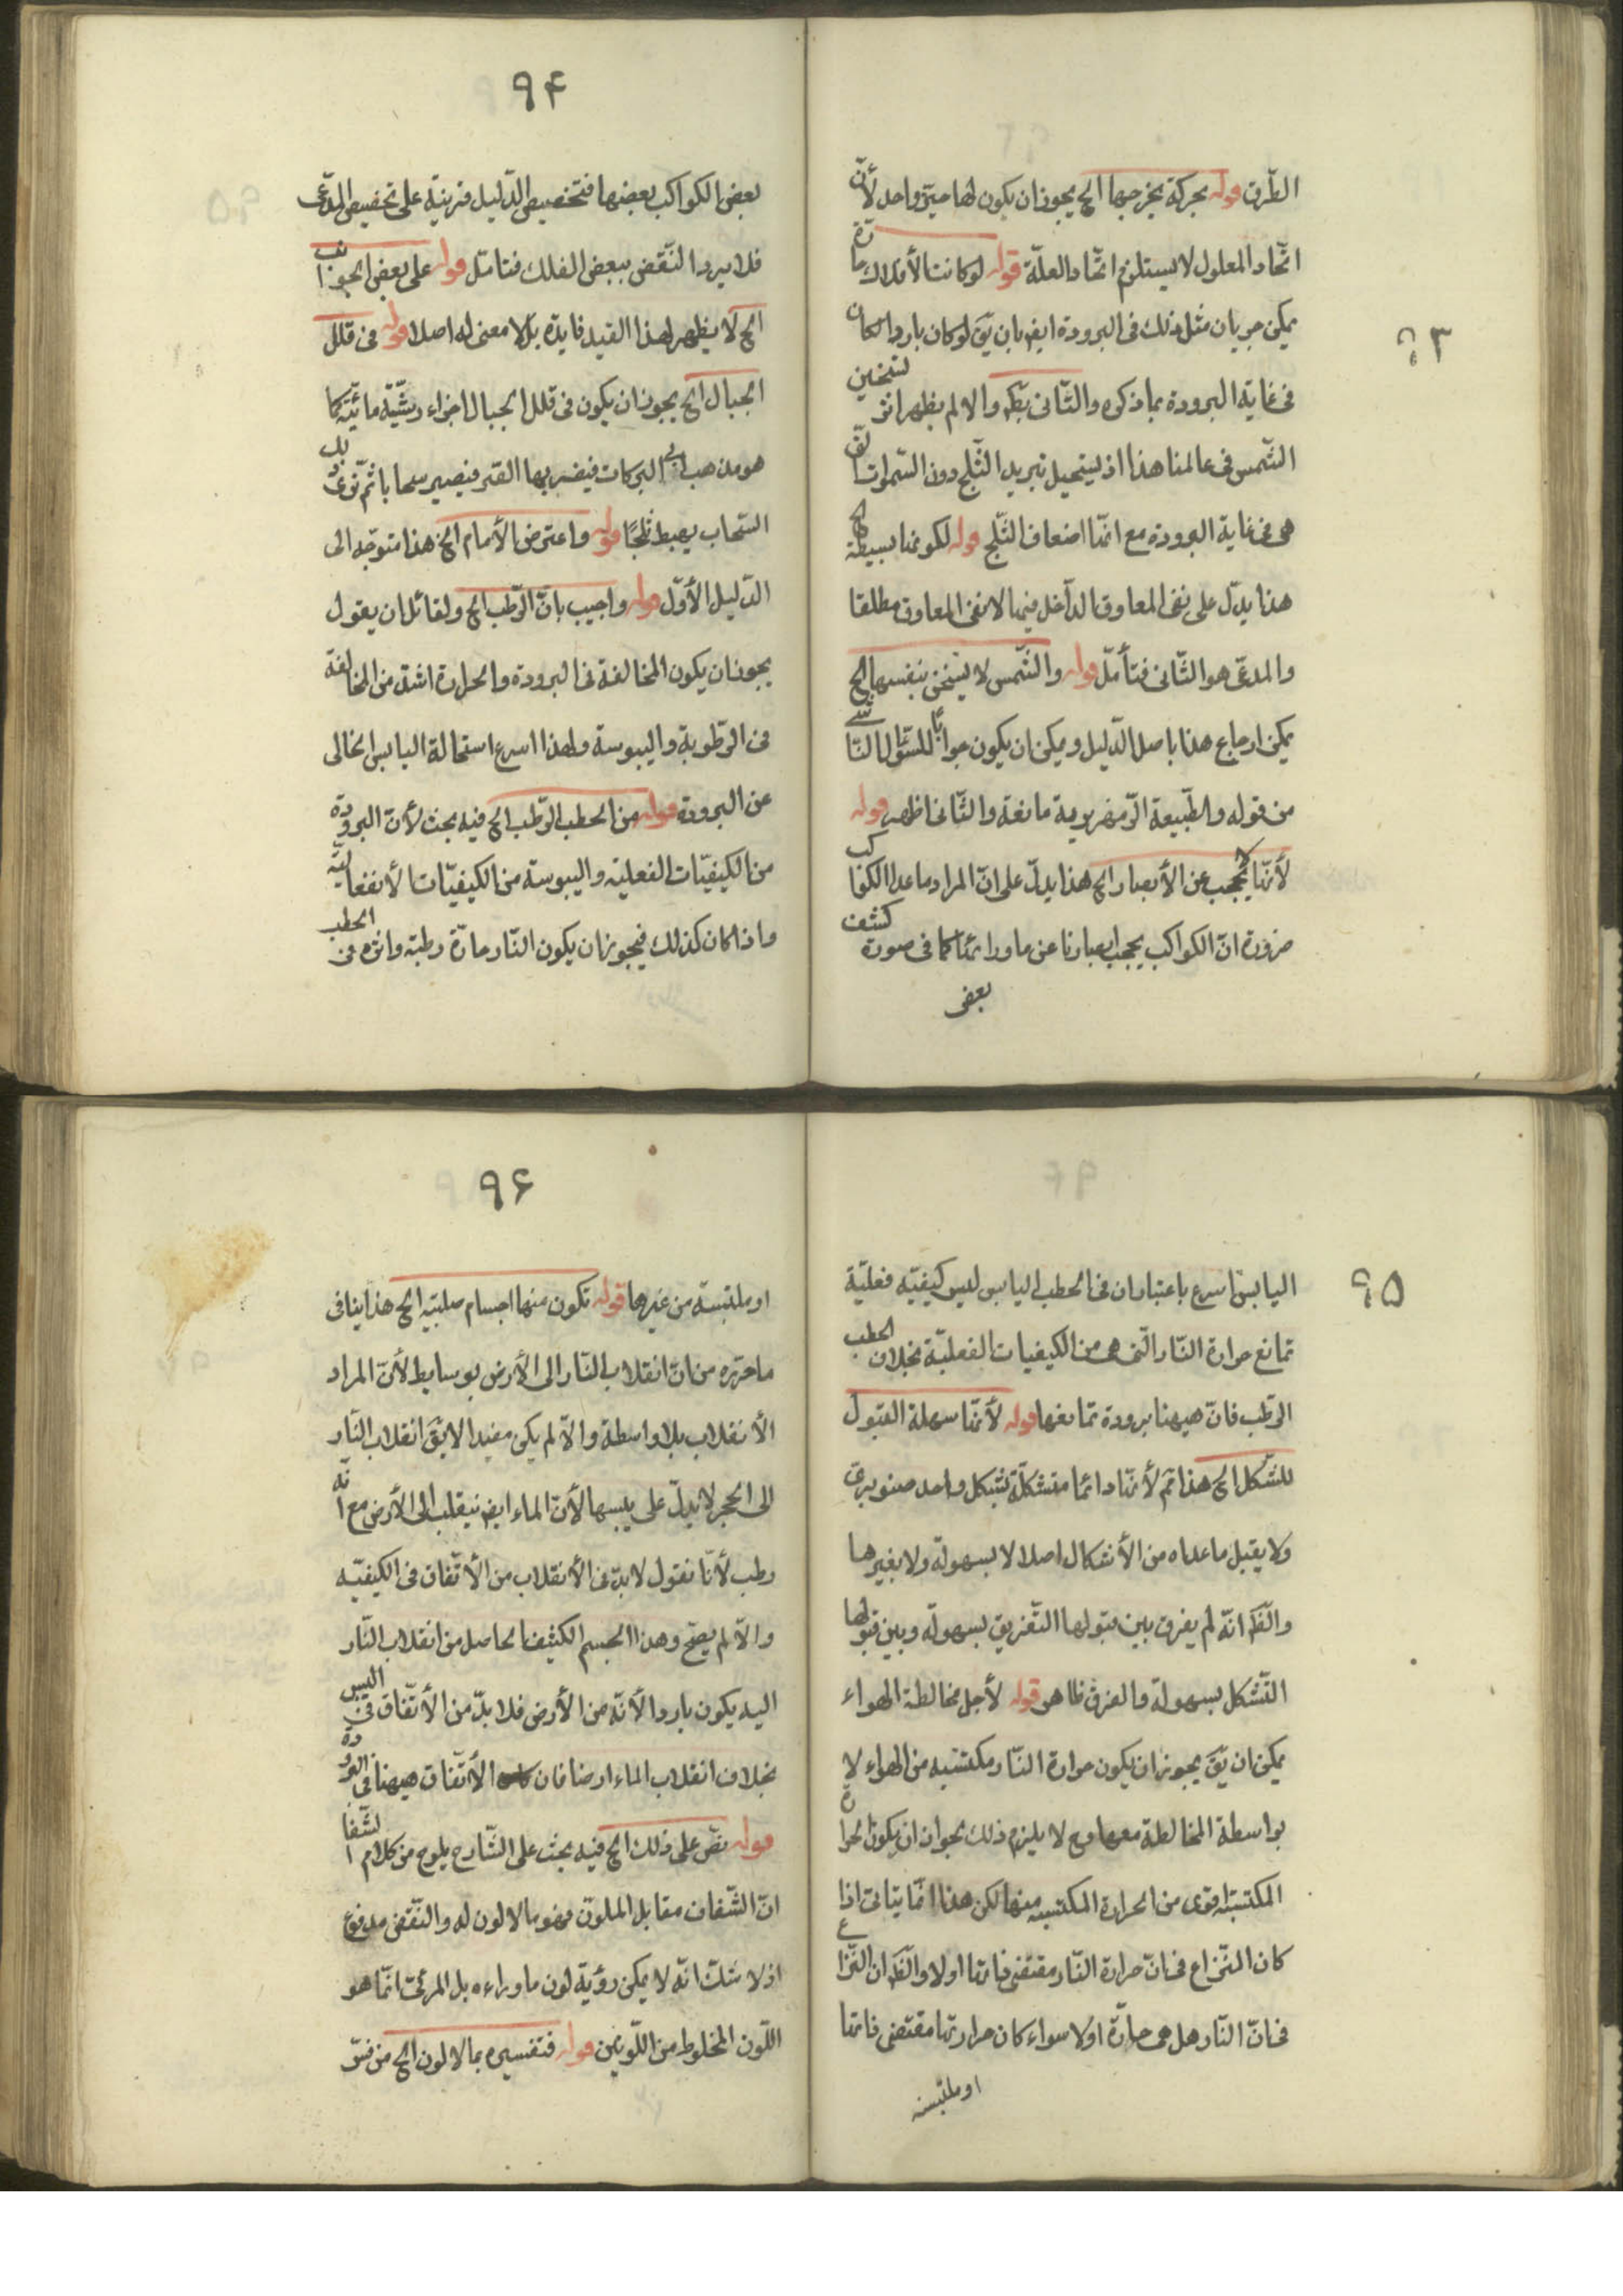 ٩٣
الطّرق قوله بحركة يخرجها الخ يجوز ان يكون لها حيّز واحد لأنّ
اتّحاد المعلول لا يستلزم اتّحاد العلّة قوله لو كانت الأفلاك حارّة
يمكن جريان مثل ذلك فى البرودة ايض بان يقَ لو كان باردا لكان
فى غاية البرودة بما ذكره والتّانى بَطَ والا لم يظهر اثر لتسخين
الشّمس فى عالمنا هذا اذ ليستحيل تبريد الثّلج دون السّموات الّتى
هى فى غاية البرودة مع انّها اضعاف الثّلج قوله لكونها بسيطة الخ
هذا يدلّ على نفى المعاوق الداخل فيها لا نفى المعاوق مطلقا
والمدعّى هو الثّانى فتأمّل قوله والشّمس لا يسخن بنفسها الخ
يمكن ارجاع هذا باصل الدّليل ويمكن ان يكون جوابا للسّؤال النّاشى
من قوله والطّبيعة الزّمهريرية مانعة والثّانى اظهر قوله
لأنّها لا تحجب عن الأبصار الخ هذا يدلّ على انّ المراد ما عدا الكواكب
ضرورة انّ الكواكب يحجب ابصارنا عن ماورائها كما فى صورة كشف
بعض
٩۴
بعض الكواكب بعضها فتخصيص الدّليل قرينة على تخصيص المدّعى
فلا يرد النّقض ببعض الفلك فتامّل قوله على بعض الجوانب
الخ لا يظهر لهذا القيد فايدة بل لا معنى له اصلا قوله فى قلل
الجبال الخ يجوز ان يكون فى قلل الجبال اجزاء رشّيّة مائيّة كما
هو مذهب ابى البركات فيضربها القر فيصير سحابا ثمّ نزع ذلك
السّحاب يهبط ثلجًا قوله واعترض الأمام الخ هذا متوجّه الى
الدّليل الأوّل قوله واجيب بانّ الرّطب الخ ولقائل ان يقول
يجوز ان يكون المخالفة فى البرودة والحرارة اشدّ من المخالفة
فى الرّطوبة واليبوسة ولهذا اسرع استحالة اليابس الخالى
عن البرودة قوله من الحطب الرّطب الخ فيه بحث لأنّ البرودة
من الكيفيّات الفعليّة واليبوسة من الكيفيّات الأنفعاليّة
واذا كان كذلك فيجوز ان يكون النّار حارّة رطبة واثره فى الحطب
٩۵
اليابس اسرع باعتبار ان فى الحطب اليابس ليس كيفيّة فعليّة
تمانع حرارة النّار الّتى هى من الكيفيات الفعليّة بخلاف الحطب
الرّطب فانّ هيهنا برودة تمانعها قوله لأنّها سهلة القبول
للتّشكل الخ هذا ثم لأنّها دائما متشكلّة بشكل واحد صنوبرىّ
ولا يقبل ما عداه من الأشكال اصلا لا بسهولة ولا بغيرها
والظَ انّه لم يفرق بين قبولها التّفريق بسهولة وبين قبولها
التّشكل بسهولة والفرق ظاهر قوله لأجل مخالطة الهواء
يمكن ان يقَ يجوز ان يكون حرارة النّار مكتسبه من الهواء لا
بواسطة المخالطة معها وح لا يلزم ذلك بجواز ان يكون الحرارة
المكتسبّة اقوى من الحرارة المكتسبه منها لكن هذا انّما يتاتى اذا
كان النّزاع فى انّ حرارة النّار مقتضى ذاتها اولا والظَ ان النّزاع
فى انّ النّار هل هى حارّة اولا سواء كان حرارتها مقتضى ذاتها
او ملتبسه
٩۶
او ملتبسة من غيرها قوله تكون منها اجسام صلبيه الخ هذا ينافى
ما حرّره من انّ انقلاب النّار الى الأرض بوسايط لأنّ المراد
الأنقلاب بلا واسطة والاّ لم يكن مفيدا لا يقَ انقلاب النّار
الى الحجر لا يدلّ على يبسها لأنّ الماء ايض ينقلب الى الأرض مع انّه
رطب لأنّا نقول لا بدّ فى الأنقلاب من الأتّفاق فى الكيفيّه
والاّ لم يصحّ وهذا الجسم الكثيف الحاصل من انقلاب النّار
اليه يكون باردا لأنّه من الأرض فلا بدّ من الأتّفاق فى اليبس
بخلاف انقلاب الماء ارضا فان الأتّفاق هيهنا فى البرودة
قوله نصّ على ذلك الخ فيه بحث على الشّارح يلوح من كلام الشّفا
انّ الشّفاف مقابل الملوّن فهو ما لا لون له والنّقض مدفوع
اذ لا شكّ انّه لا يمكن رؤية لون ما وراءه بل المرئىّ انّما هو
اللّون المخلوط من اللّونين قوله فتفسيره بما لا لون الخ من فسّر